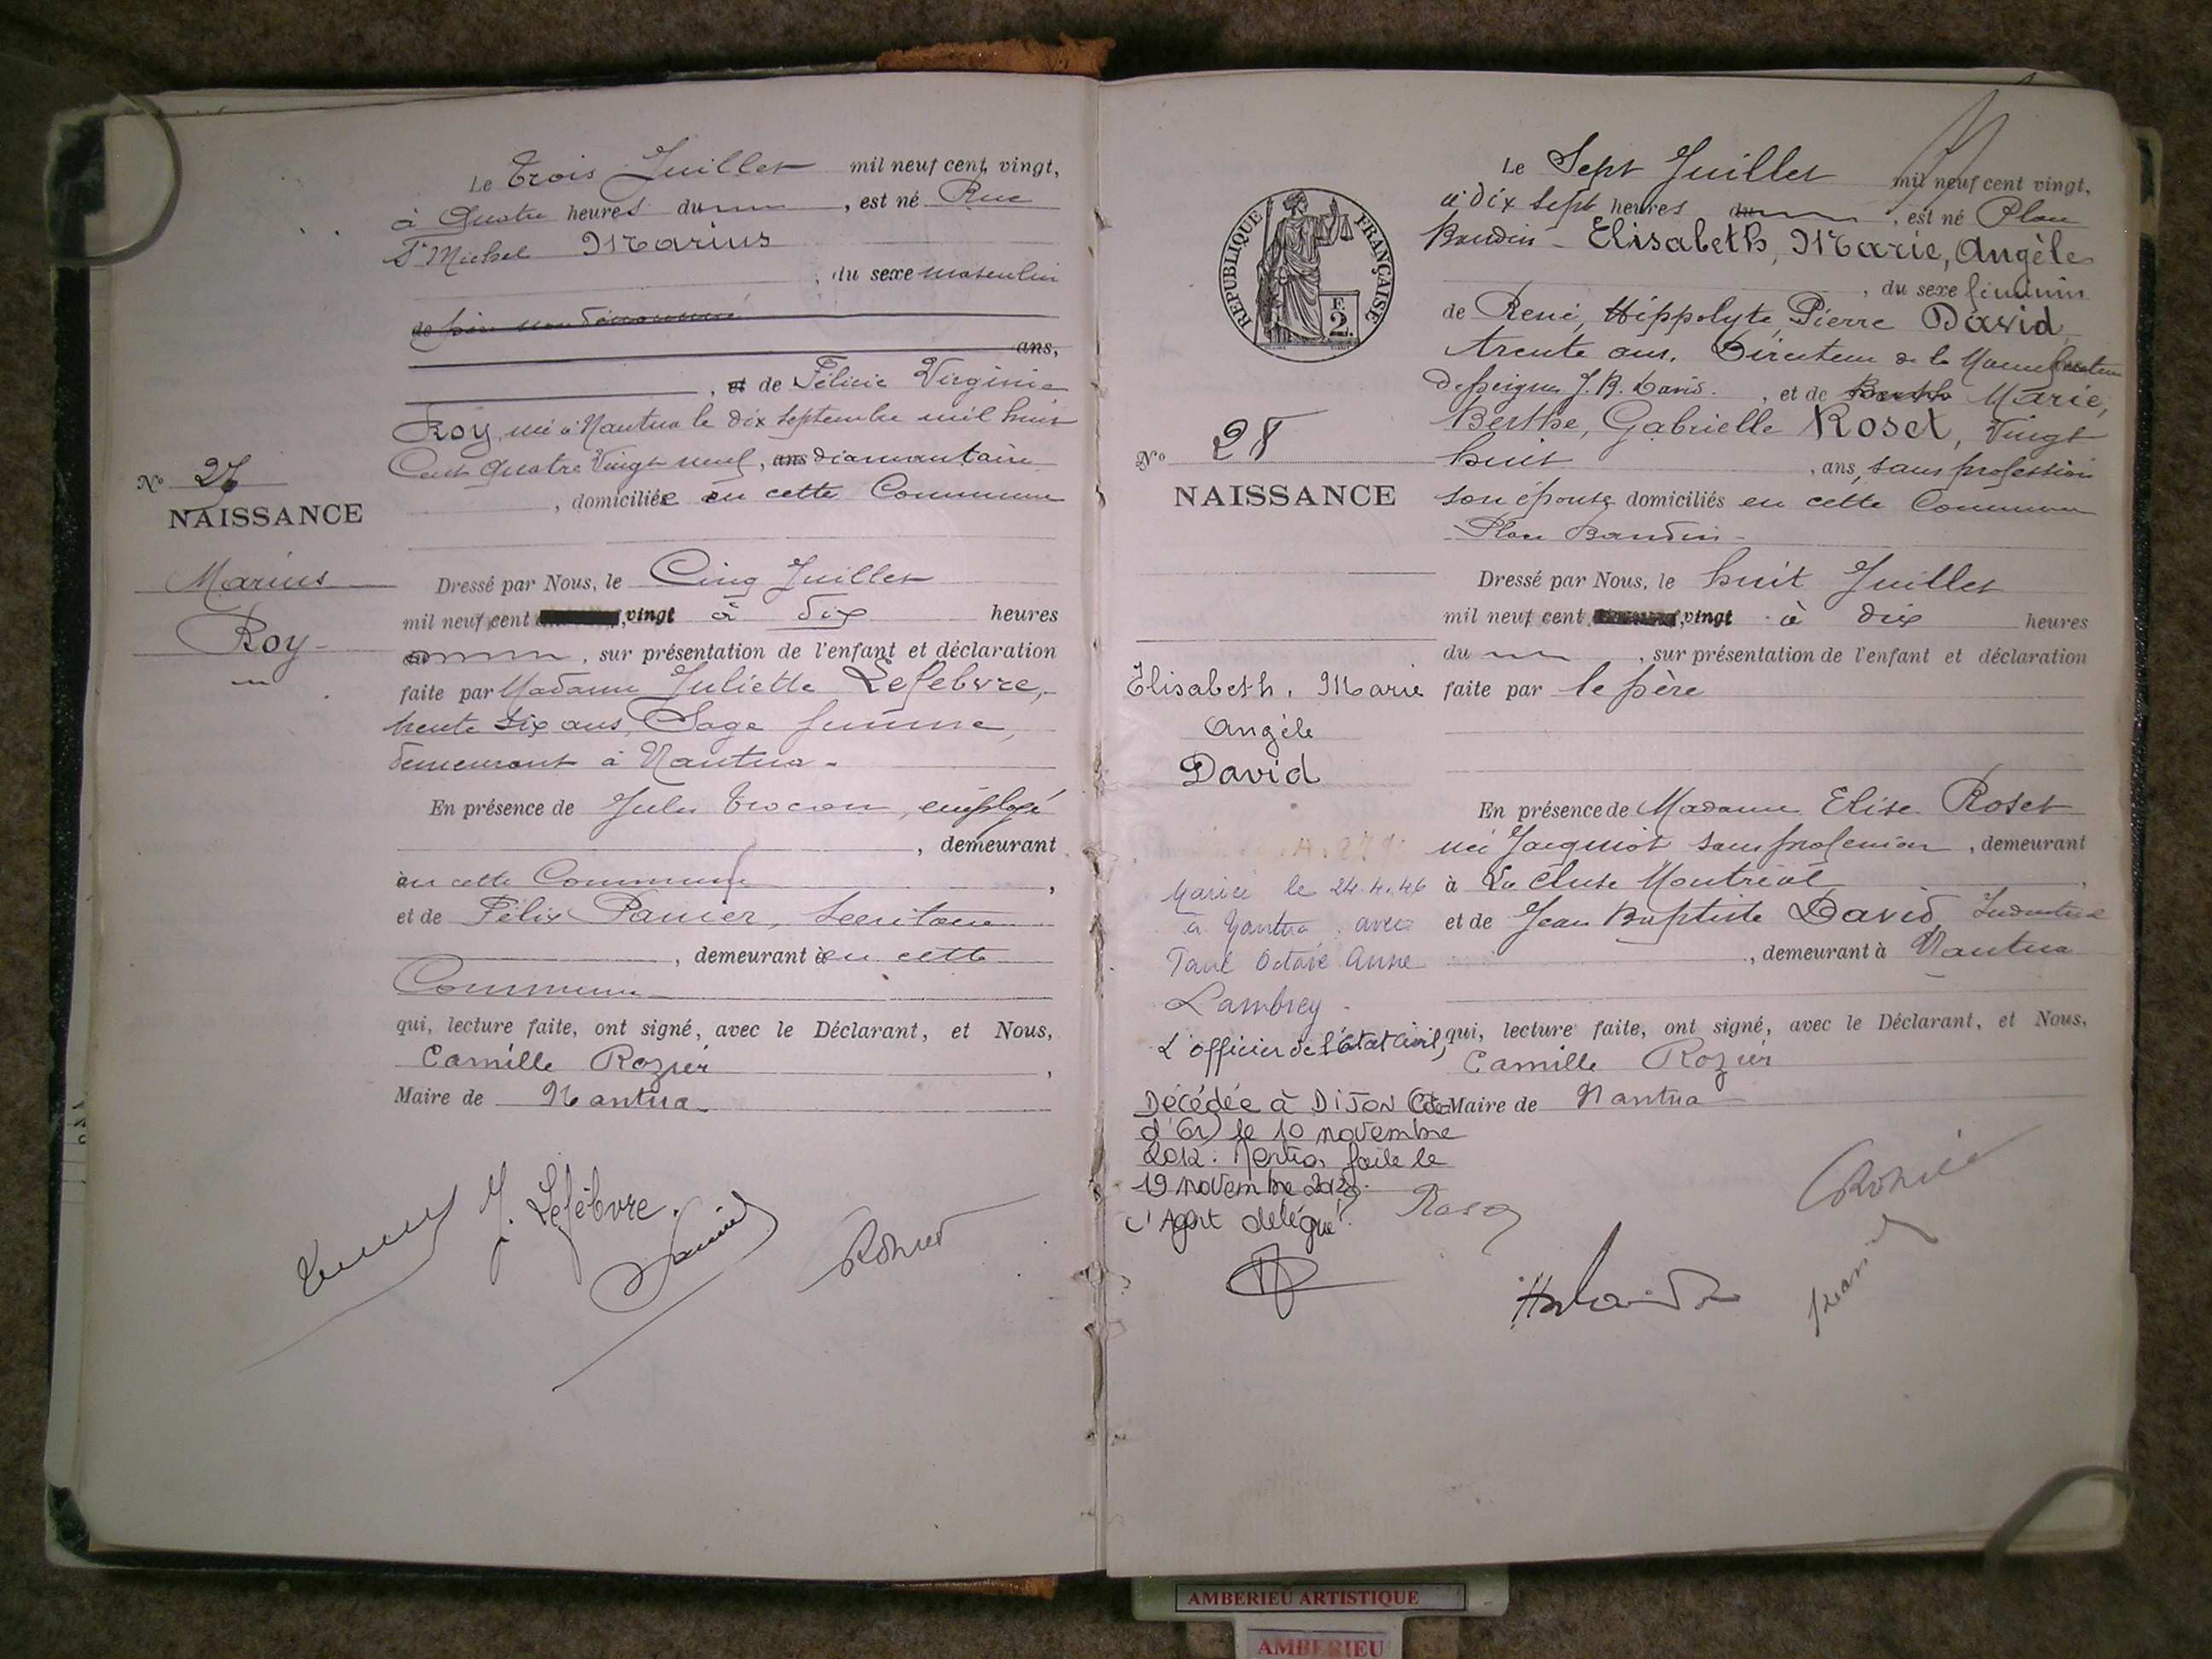 Le Trois Juillet mil neuf cent vingt,
à Quatre heures du , est né Rue
St Michel Marius
, du sexe masculin
de père non dénommé
ans,
, et de Félicie Virginie
Roy, née à Nantua le dix septembre mil huit
Cent quatre Vingt neuf, ans diamantaire
, domiciliée en cette Commune
No 27
NAISSANCE
Marius
Roy
Dressé par Nous, le Cinq Juillet
mil neuf cent vingt à dix heures
du , sur présentation de l'enfant et déclaration
faite par Madame Juliette Lefebvre,
trente six ans, Sage femme,
demeurant à Nantua
En présence de Jules , employé
, demeurant
en cette Commune,
et de Félix , Secrétaire
, demeurant en cette
Commune
qui, lecture faite, ont signé, avec le Déclarant, et Nous,
Camille Rozier,
Maire de Nantua
J. Lefèbvre.
Rozier
RÉPUBLIQUE FRANÇAISE
F.
2.
Le Sept Juillet mil neuf cent vingt,
à dix sept heures du , est né Place
Baudin - Elisabeth, Marie, Angèle
, du sexe féminin
de René, Hippolyte, Pierre David
trente ans, Directeur de la Manufacture
de peignes J. B. David. , et de Berthe Marie,
Berthe, Gabrielle Roset, Vingt
huit , ans, sans profession
son épouse domiciliés en cette Commune
Place Baudin
No 28
NAISSANCE
Elisabeth, Marie
Angèle
David
Dressé par Nous, le huit Juillet
mil neuf cent vingt à dix heures
du , sur présentation de l'enfant et déclaration
faite par le père
En présence de Madame Elise Roset
née Jacquiot sans profession, demeurant
à La Cluse Montréal,
et de Jean Baptiste David, Industriel
, demeurant à Nantua
qui, lecture faite, ont signé, avec le Déclarant, et Nous,
Camille Rozier
Maire de Nantua
Mariée le 24.4.46
à Nantua avec
Paul Octave Anne
Lambrey -
L'officier de l'Etat Civil,
Décédée à DIJON (Côte
d'Or) le 10 novembre
2012. Mention faite le
19 novembre 2012.
L'Agent délégué
AMBERIEU ARTISTIQUE
AMBERIEU